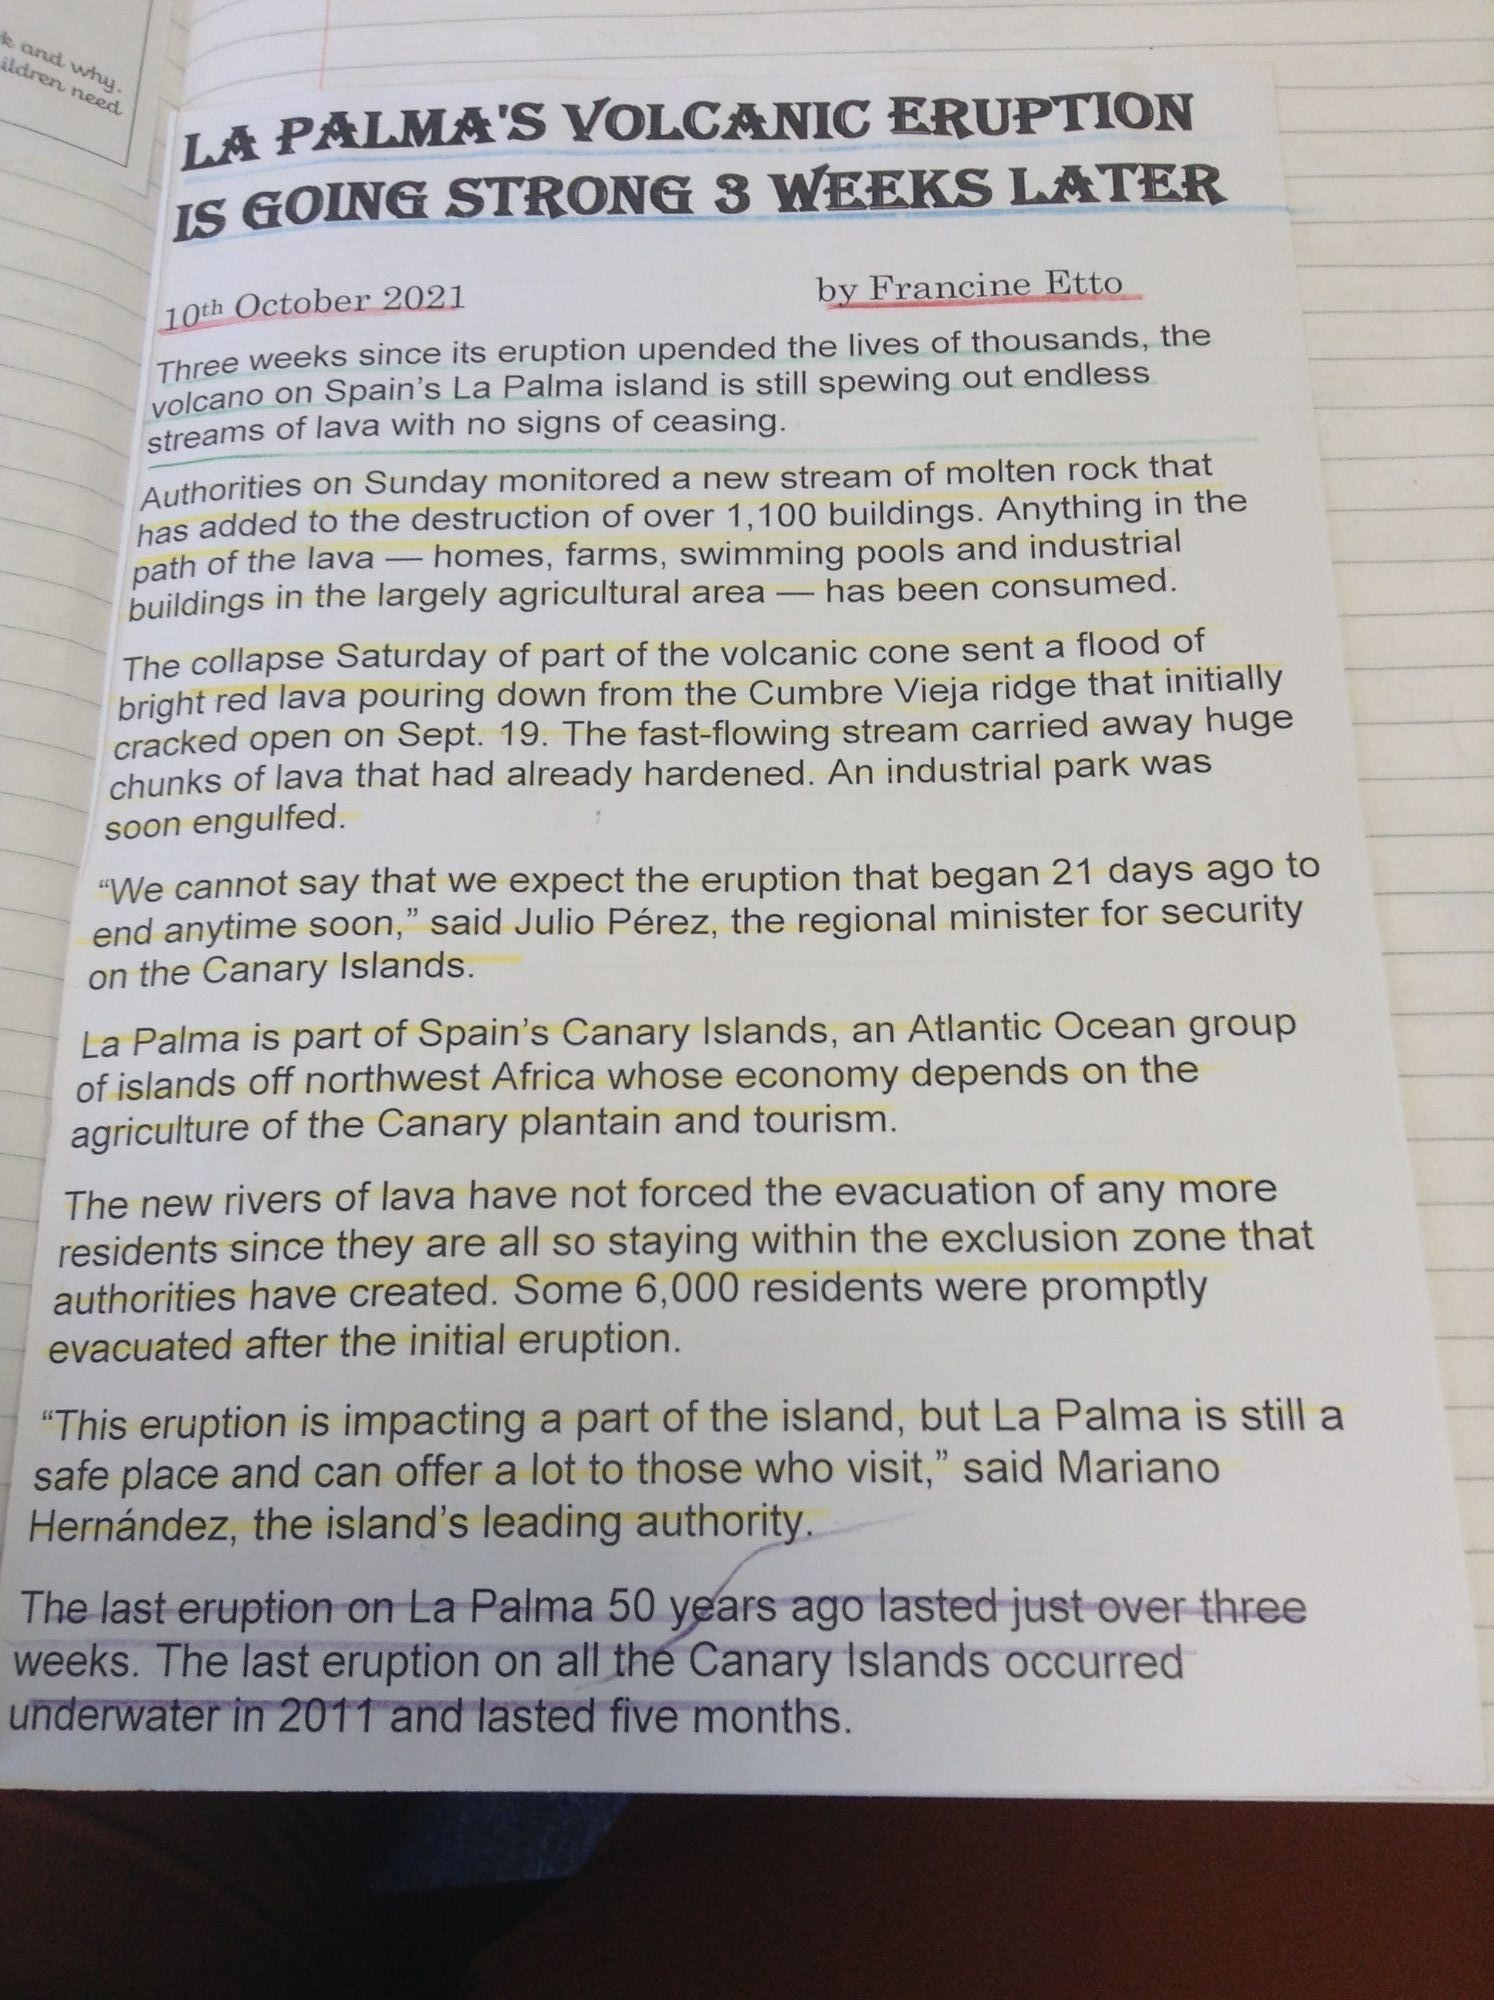 k and why.
ildren need
LA PALMA'S VOLCANIC ERUPTION
IS GOING STRONG 3 WEEKS LATER
10th October 2021 by Francine Etto
Three weeks since its eruption upended the lives of thousands, the
volcano on Spain's La Palma island is still spewing out endless
streams of lava with no signs of ceasing.
Authorities on Sunday monitored a new stream of molten rock that
has added to the destruction of over 1,100 buildings. Anything in the
path of the lava — homes, farms, swimming pools and industrial
buildings in the largely agricultural area — has been consumed.
The collapse Saturday of part of the volcanic cone sent a flood of
bright red lava pouring down from the Cumbre Vieja ridge that initially
cracked open on Sept. 19. The fast-flowing stream carried away huge
chunks of lava that had already hardened. An industrial park was
soon engulfed.
“We cannot say that we expect the eruption that began 21 days ago to
end anytime soon,” said Julio Pérez, the regional minister for security
on the Canary Islands.
La Palma is part of Spain’s Canary Islands, an Atlantic Ocean group
of islands off northwest Africa whose economy depends on the
agriculture of the Canary plantain and tourism.
The new rivers of lava have not forced the evacuation of any more
residents since they are all so staying within the exclusion zone that
authorities have created. Some 6,000 residents were promptly
evacuated after the initial eruption.
“This eruption is impacting a part of the island, but La Palma is still a
safe place and can offer a lot to those who visit,” said Mariano
Hernández, the island’s leading authority.
The last eruption on La Palma 50 years ago lasted just over three
weeks. The last eruption on all the Canary Islands occurred
underwater in 2011 and lasted five months.